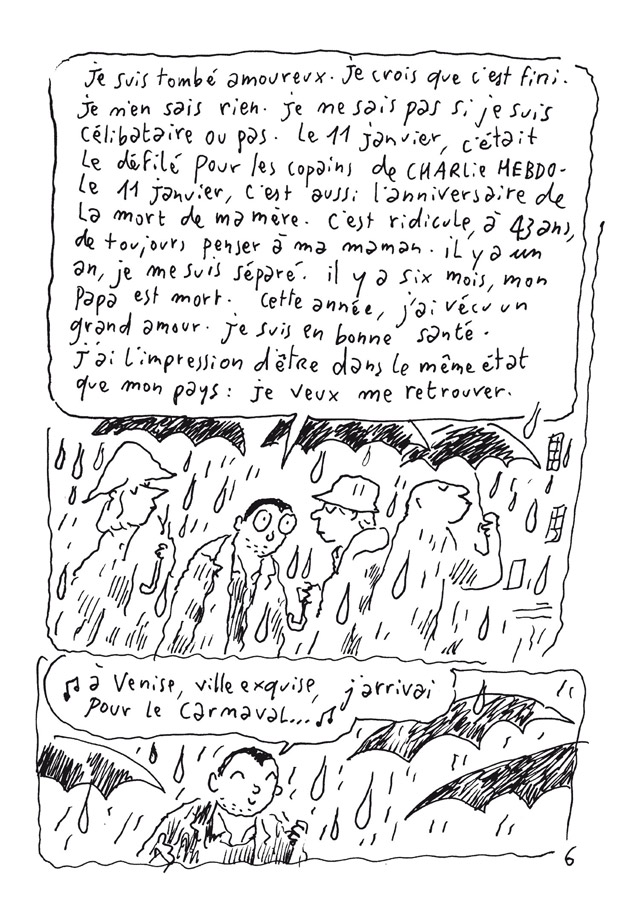 je suis tombé amoureux. Je crois que c'est fini.
Je n'en sais rien. je ne sais pas si je suis
célibataire ou pas. Le 11 janvier, c'était
Le défilé pour les copains de CHARLIE HEBDO.
Le 11 janvier, c'est aussi l'anniversaire de
La mort de ma mère. C'est ridicule, à 43 ans,
de toujours penser à ma maman. il y a un
an, je me suis séparé. il y a six mois, mon
Papa est mort. Cette année, j'ai vécu un
grand amour. je suis en bonne santé.
J'ai l'impression d'être dans le même état
que mon pays: je veux me retrouver.
♫ à Venise, ville exquise, j'arrivai
pour le Carnaval... ♫
6